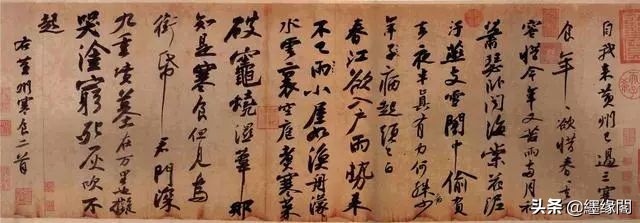 自我来黄州已過三寒
食年〻欲惜春春去不
容惜今年又苦雨兩月秋
蕭瑟卧聞海棠花泥
汙燕支雪闇中偷負
去夜半真有力何殊病少
年子病起頭已白
春江欲入户雨勢来
不已雨小屋如漁舟濛〻
水雲裏空庖煮寒菜
破竈燒溼葦那
知是寒食但見烏
銜帋君門深
九重墳墓在万里也擬
哭塗窮死灰吹不
起
右黄州寒食二首
头条 @纆缘閣